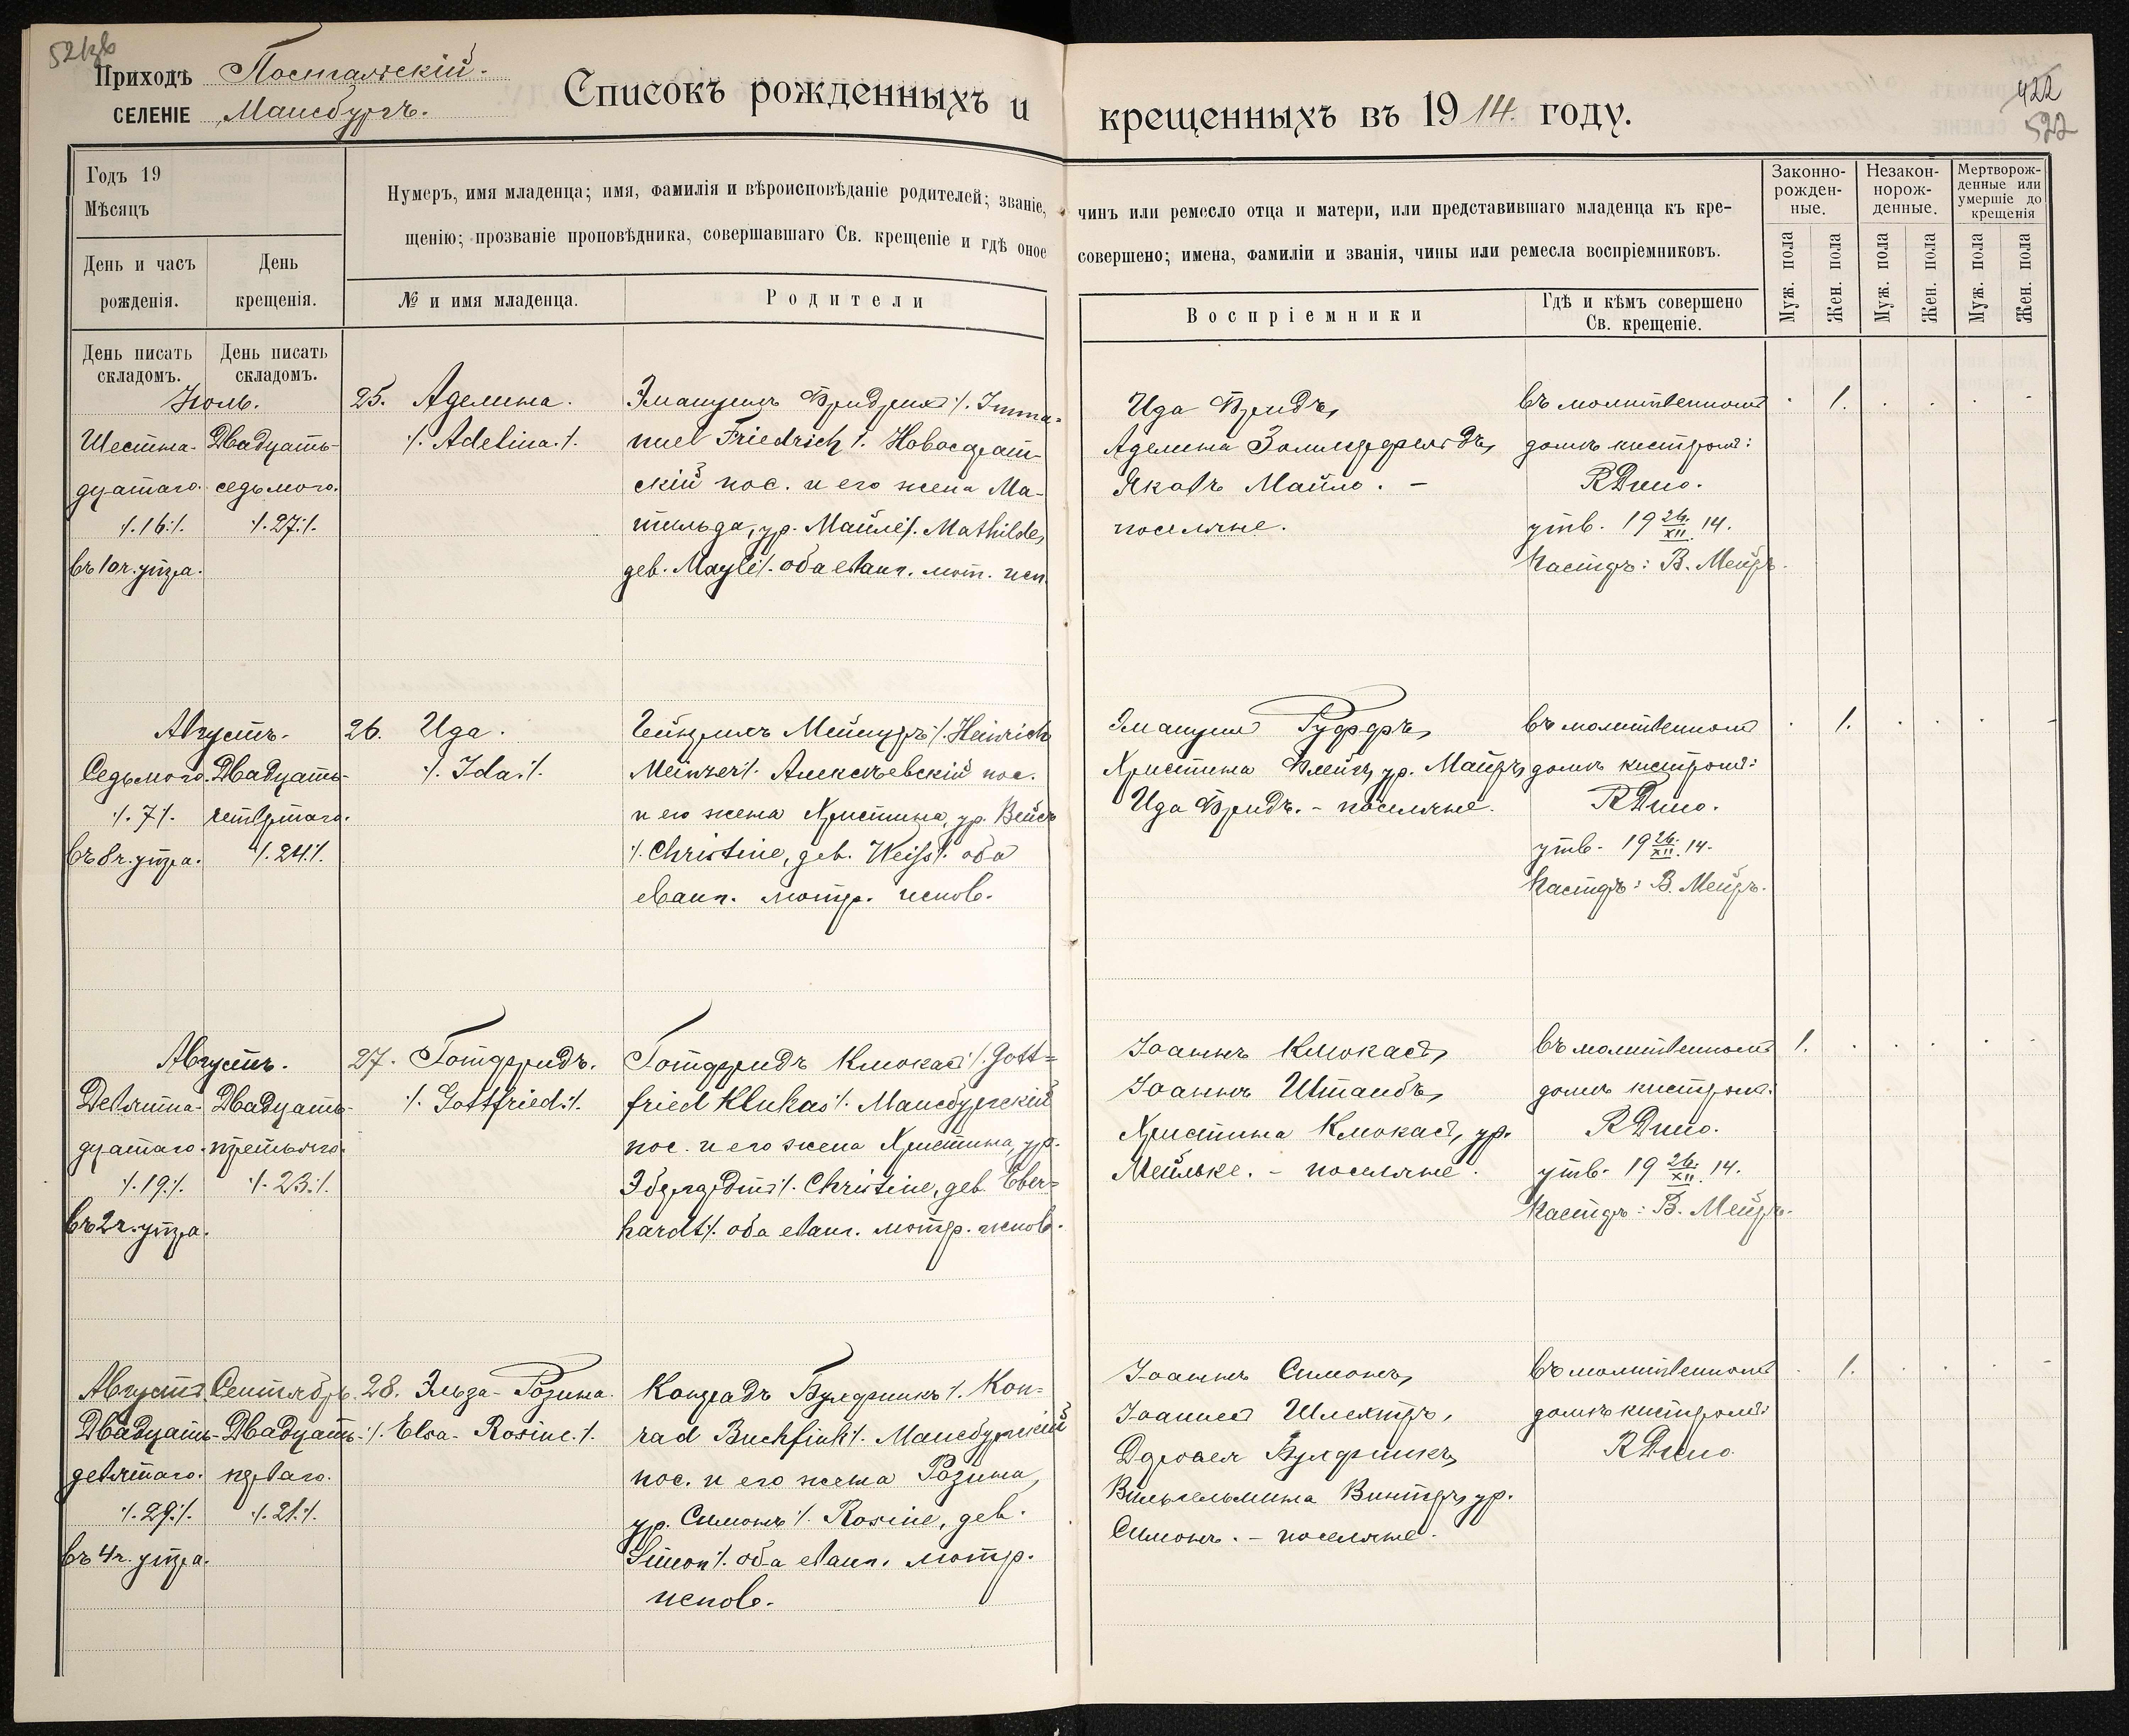 521зв
Приходъ Постальскій.
СЕЛЕНІЕ Мансбургъ.
Списокъ рожденныхъ и крещенныхъ въ 1914. году.
422
522
Годъ 19
Мѣсяцъ
День и часъ рожденія.
День крещенія.
Нумеръ, имя младенца; имя, фамилія и вѣроисповѣданіе родителей; званіе, чинъ или ремесло отца и матери, или представившаго младенца къ кре-
щенію; прозваніе проповѣдника, совершавшаго Св. крещеніе и гдѣ оное совершено; имена, фамиліи и званія, чины или ремесла воспріемниковъ.
№ и имя младенца.
Родители
Воспріемники
Гдѣ и кѣмъ совершено
Св. крещеніе.
Законно-
рожден-
ные.
Незакон-
норож-
денные.
Мертворож-
денные или
умершіе до
крещенія
Муж. пола
Жен. пола
Муж. пола
Жен. пола
Муж. пола
Жен. пола
День писать
складомъ.
День писать
складомъ.
Іюль.
Шестна-
дцатаго.
/.16./.
въ 10 ч. утра.
Двадцать-
седьмого.
/.27./.
25. Аделина.
/. Adelina ./.
Эмануилъ Фридрихъ /. Imma-
nuel Friedrich /.
скій пос. и его жена Ма-
тильда, ур. Майле /. Mathilde,
geb. Mayle /. оба еванг. лют. исп.
Ида Фридъ,
Аделина
Яковъ Майле. -
поселяне.
въ молитвенномъ
домѣ кистеромъ:
утв. 19 26./XII. 14.
Пасторъ: В. Мейеръ.
1.
Августъ.
Седьмого.
/.7./.
въ 8 ч. утра.
Двадцать-
четвертаго.
/.24./.
26. Ида.
/. Ida ./.
Гейнрихъ Мейнцеръ /. Heinrich
Meinzer /. Алексѣевскій пос.
и его жена Христина, ур. Вейсъ
/. Christine, geb. Weiss /. оба
еванг. лютер. испов.
Эмануилъ
Христина ур. Майеръ,
Ида Фридъ. - поселяне.
въ молитвенномъ
домѣ кистеромъ:
утв. 19 26./XII. 14.
Пасторъ: В. Мейеръ.
1.
Августъ.
Девятна-
дцатаго.
/.19./.
въ 2 ч. утра.
Двадцать-
третьяго.
/.23./.
27. Готфридъ.
/. Gottfried ./.
Готфридъ Клюкасъ /. Gott=
fried Klukas /. Мансбургскій
пос. и его жена Христина, ур.
Эбергардтъ /. Christine, geb. Eber=
hardt /. оба еванг. лютер. испов.
Іоаннъ Клюкасъ,
Іоаннъ Штаибъ,
Христина Клюкасъ, ур.
Мейльке. - поселяне.
въ молитвенномъ
домѣ кистеромъ:
утв. 19 26./XII. 14.
Пасторъ: В. Мейеръ.
1.
Августъ.
Двадцать-
девятаго.
/.29./.
въ 4 ч. утра.
Сентябрь.
Двадцать-
перваго.
/.21./.
28. Эльза-Розина.
/. Elsa-Rosine ./.
Конрадъ Бухфинкъ /. Kon=
rad Buchfink /. Мансбургскій
пос. и его жена Розина,
ур. Симонъ /. Rosine, geb.
Simon /. оба еванг. лютер.
испов.
Іоаннъ Симонъ,
Іоаннъ Шлехтеръ,
Доротея Бухфинкъ,
Вильгельмина Винтеръ, ур.
Симонъ. - поселяне.
въ молитвенномъ
домѣ кистеромъ:
1.